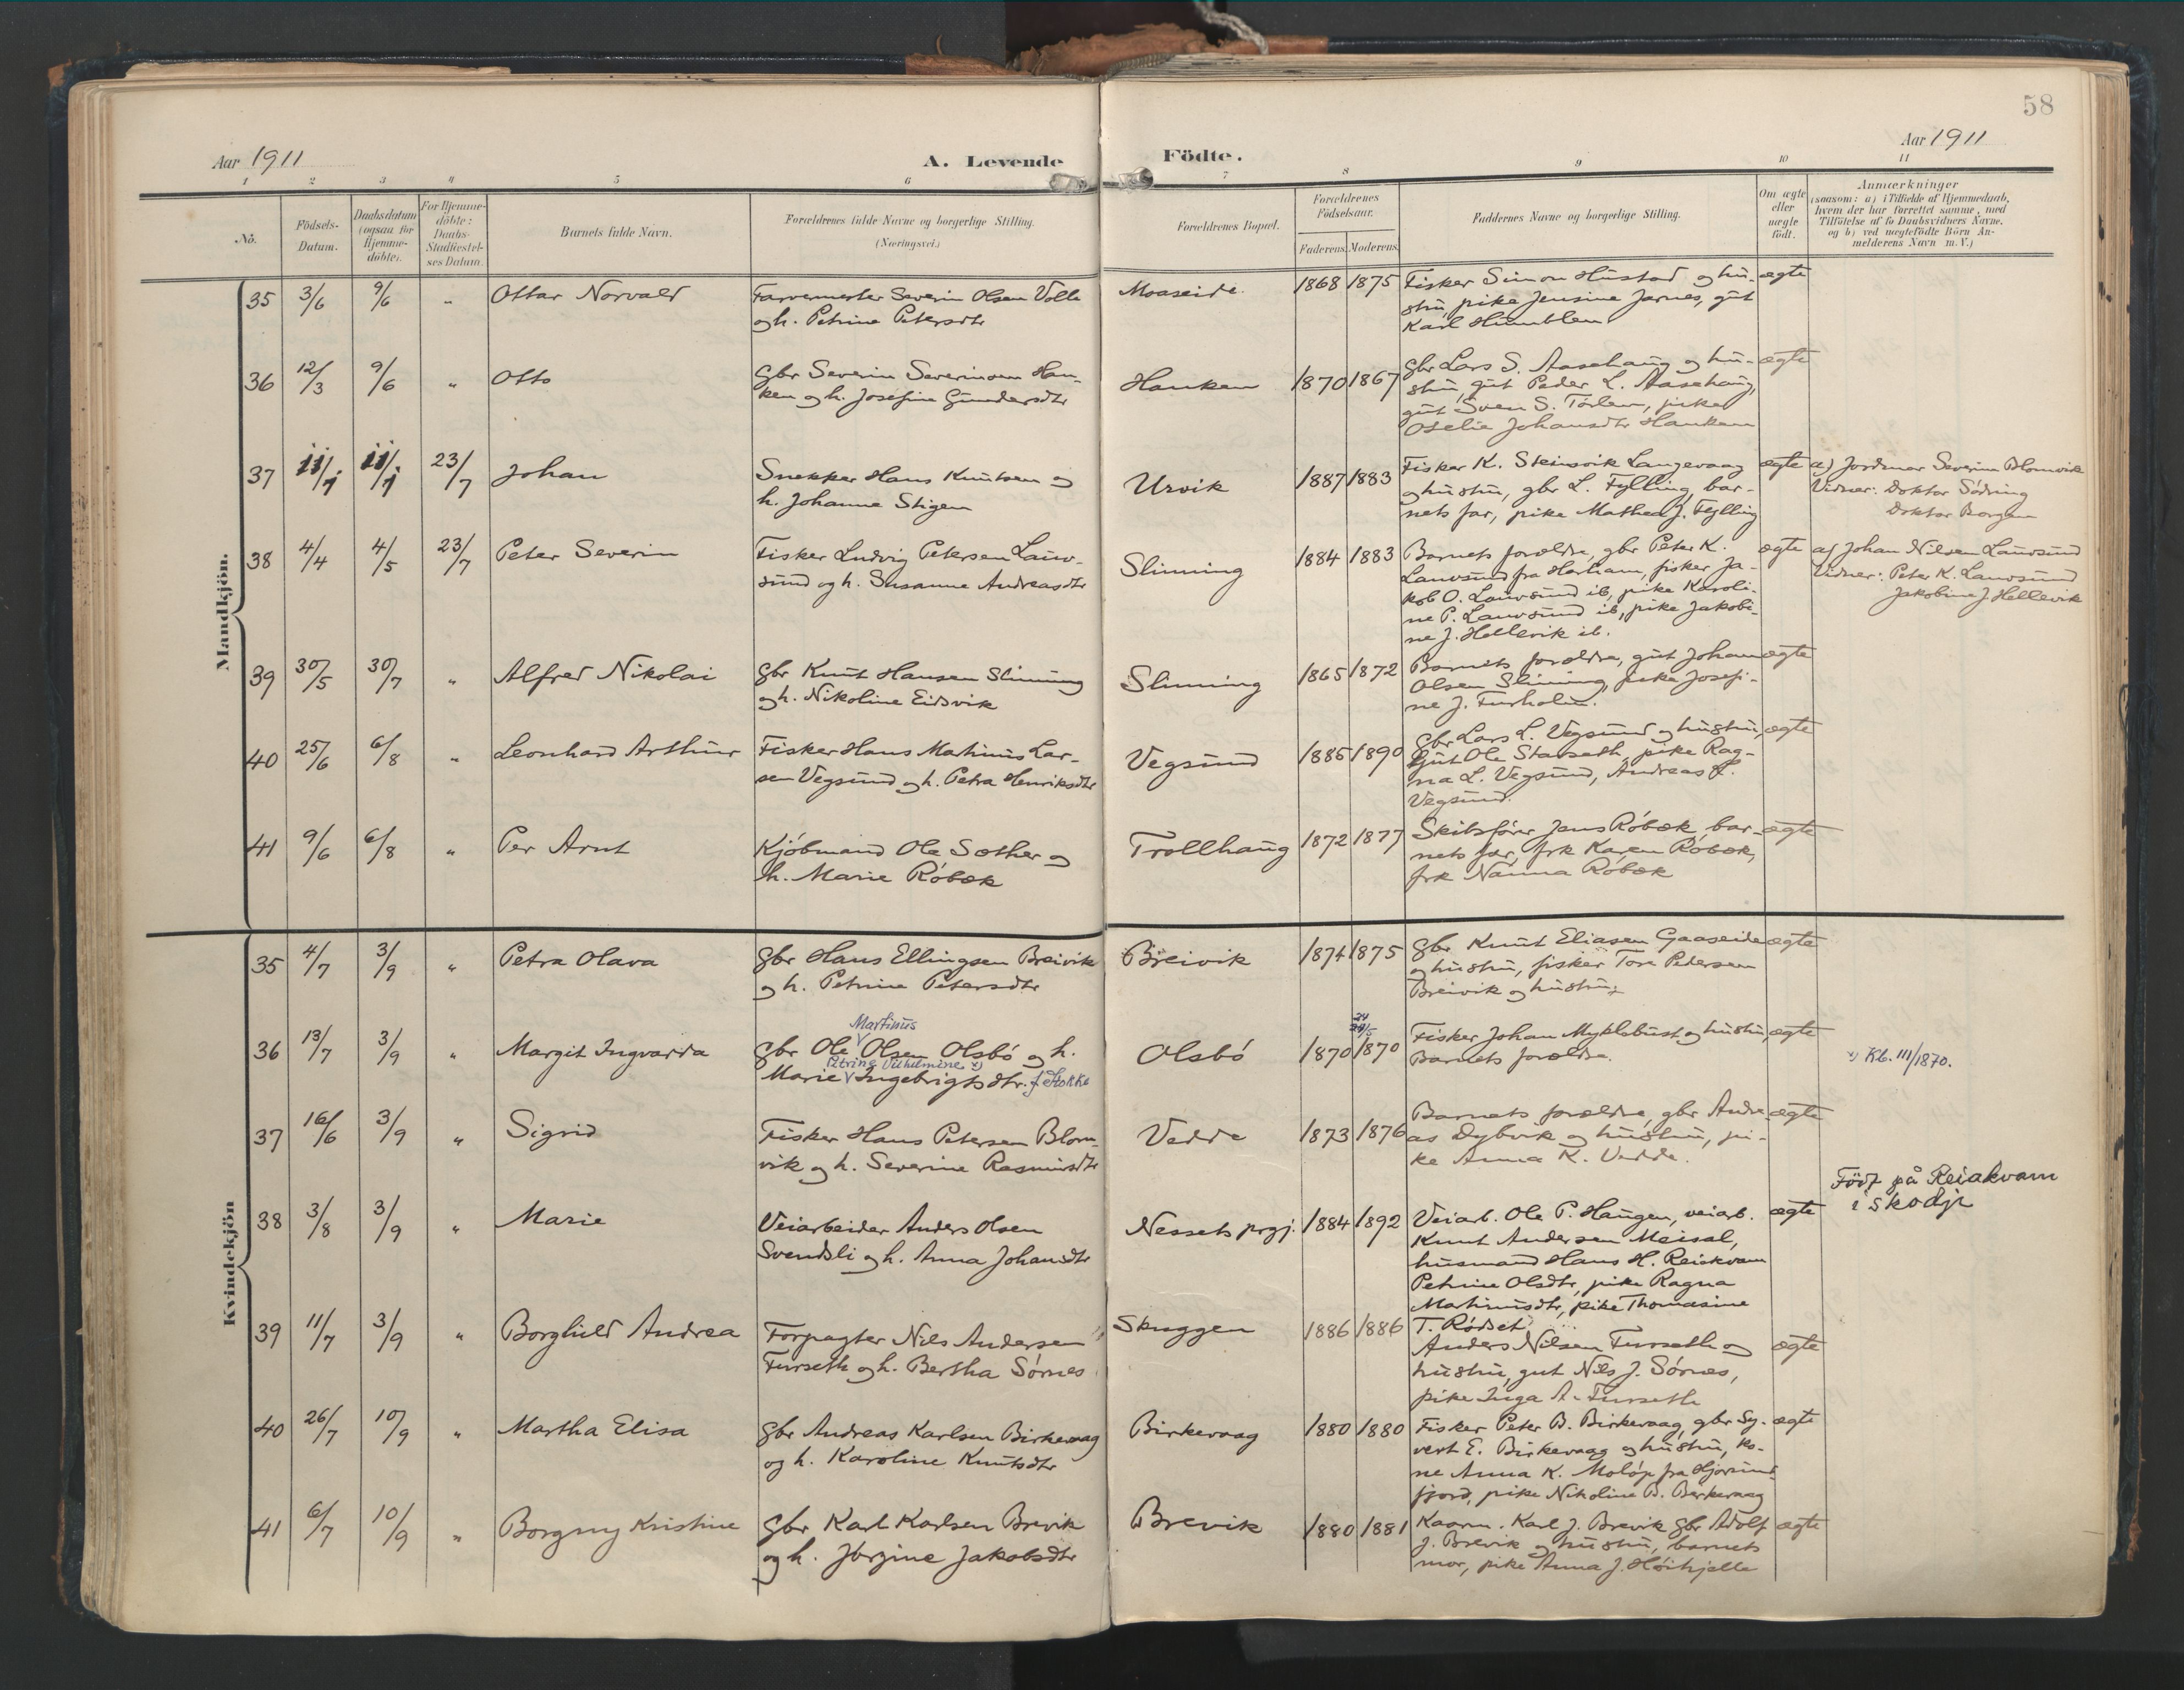 58
Aar 1911
A. Levende Födte.
Aar 1911
1 2 3 4 5 6 7 8 9 10 11
No.
Födsels-
Datum.
Daabsdatum
(ogsaa for
Hjemme-
döbte).
For Hjemme-
döbte:
Daabs-
Stadfæstel-
ses Datum.
Barnets fulde Navn.
Forældrenes fulde Navne og borgerlige Stilling.
(Næringsvei.)
Forældrenes Bopæl.
Forældrenes
Födselsaar.
Faderens. Moderens.
Faddernes Navne og borgerlige Stilling.
Om ægte
eller
uægte
födt.
Anmærkninger
(saasom: a) i Tilfælde af Hjemmedaab,
hvem der har forrettet samme, med
Tilföielse af to Daabsvidners Navne,
og b) ved uægtefödte Börn An-
melderens Navn m. V.)
Mandkjön.
35 3/6 9/6 " Ottar Norvald
Farvemester Severin Olsen Volle
og h. Petrine Petersdtr
Moaseide 1868 1875
Fisker Simon Hustad og hu-
stru, pike Jensine Jarnes, gut
Karl Humblen
ægte
36 12/3 9/6 " Otto
Gbr Severin Severinsen Han-
ken og h. Josefine Gundersdtr
Hanken 1870 1867
Gbr Lars S. Aasehaug og hu-
stru, gut Peder L. Aasehaug,
gut Sven S. Torlen, pike
Oselie Johansdtr Hanken
ægte
37 11/7 11/7 23/7 Johan
Snekker Hans Knutsen og
h. Johanne Stigen
Urvik 1887 1883
Fisker K. Steinsvik Langevaag
og hustru, gbr L. Fylling, bar-
nets far, pike Mathea J. Fylling
ægte
a) Jordmor Severine Blomvik
Vidner: Doktor Södring
Doktor Borgen
38 4/4 4/5 23/7 Peter Severin
Fisker Ludvig Petersen Lauv-
sund og h. Susanne Andreasdtr
Slinning 1884 1883
Barnets forældre, gbr Peter K.
Lauvsund fra Harham, fisker Ja-
kob O. Lauvsund ib, pike Karoli-
ne P. Lauvsund ib, pike Jakobi-
ne J. Hellevik ib.
ægte
a) Johan Nilsen Lauvsund
Vidner: Peter K. Lauvsund
Jakobine J. Hellevik
39 30/5 30/7 " Alfred Nikolai
Gbr Knut Hansen Slinning
og h. Nikoline Eidsvik
Slinning 1865 1872
Barnets forældre, gut Johan
Olsen Slinning, pike Josefi-
ne J. Furholm.
ægte
40 25/6 6/8 " Leonhard Arthur
Fisker Hans Matinus Lar-
sen Vegsund og h. Petra Henriksdtr
Vegsund 1885 1890
Gbr Lars L. Vegsund og hustru,
Gut Ole Stavseth, pike Rag-
na L. Vegsund, Andreas L.
Vegsund.
ægte
41 9/6 6/8 " Per Arnt
Kjöbmand Ole Sæther og
h. Marie Röbek
Trollhaug 1872 1877
Skibsfører Jens Röbek, bar-
nets far, frk Karen Röbek,
frk Nanna Röbek
ægte
Kvindekjön
35 4/7 3/9 " Petra Olava
Gbr Hans Ellingsen Breivik
og h. Petrine Petersdtr
Breivik 1874 1875
Gbr Knut Eliasen Gaaseide
og hustru, fisker Tore Pedersen
Breivik og hustru
ægte
36 13/7 3/9 " Margit Ingvarda
Martinus
Gbr Ole Olsen Olsbö og h.
Petrine Vilhelmine x)
Marie Ingebrigtsdtr. f. Stokke
Olsbö 1870 1870
Fisker Johan Myklebust og hustru,
Barnets forældre.
ægte
x) Kb. III/1870.
37 16/6 3/9 " Sigrid
Fisker Hans Petersen Blom-
vik og h. Severine Rasmusdtr
Vedde 1873 1876
Barnets forældre, gbr Andre-
as Dybvik og hustru, pi-
ke Anna K. Vedde.
ægte
38 3/8 3/9 " Marie
Veiarbeider Anders Olsen
Svendsli og h. Anna Johansdtr
Nessets prgj. 1884 1892
Veiarb. Ole P. Haugen, veiarb.
Knut Andersen Meisal,
husmand Hans H. Reiakvam
Petrine Olsdtr, pike Ragna
Martinusdtr, pike Thomasine
T. Rödset
ægte
Född på Reiakvam
i Skodje
39 11/7 3/9 " Borghild Andrea
Forpagter Nils Andersen
Furseth og h. Bertha Sörnes
Skuggen 1886 1886
Anders Nilsen Furseth og
hustru, gut Nils J. Sörnes,
pike Inga A. Furseth
ægte
40 26/7 10/9 " Martha Elisa
Gbr Andreas Karlsen Birkevaag
og h. Karoline Knutsdtr
Birkevaag 1880 1880
Fisker Peter B. Birkevaag, gbr Sy-
vert E. Birkevaag og hustru, ko-
ne Anna K. Molöp fra Hjörund-
fjord, pike Nikoline B. Birkevaag
ægte
41 6/7 10/9 " Borgny Kristine
Gbr Karl Karlsen Brevik
og h. Jörgine Jakobsdtr
Brevik 1880 1881
Kaarm. Karl J. Brevik Gbr Adolf
J. Brevik og hustru, barnets
mor, pike Anna J. Höihjelle
ægte